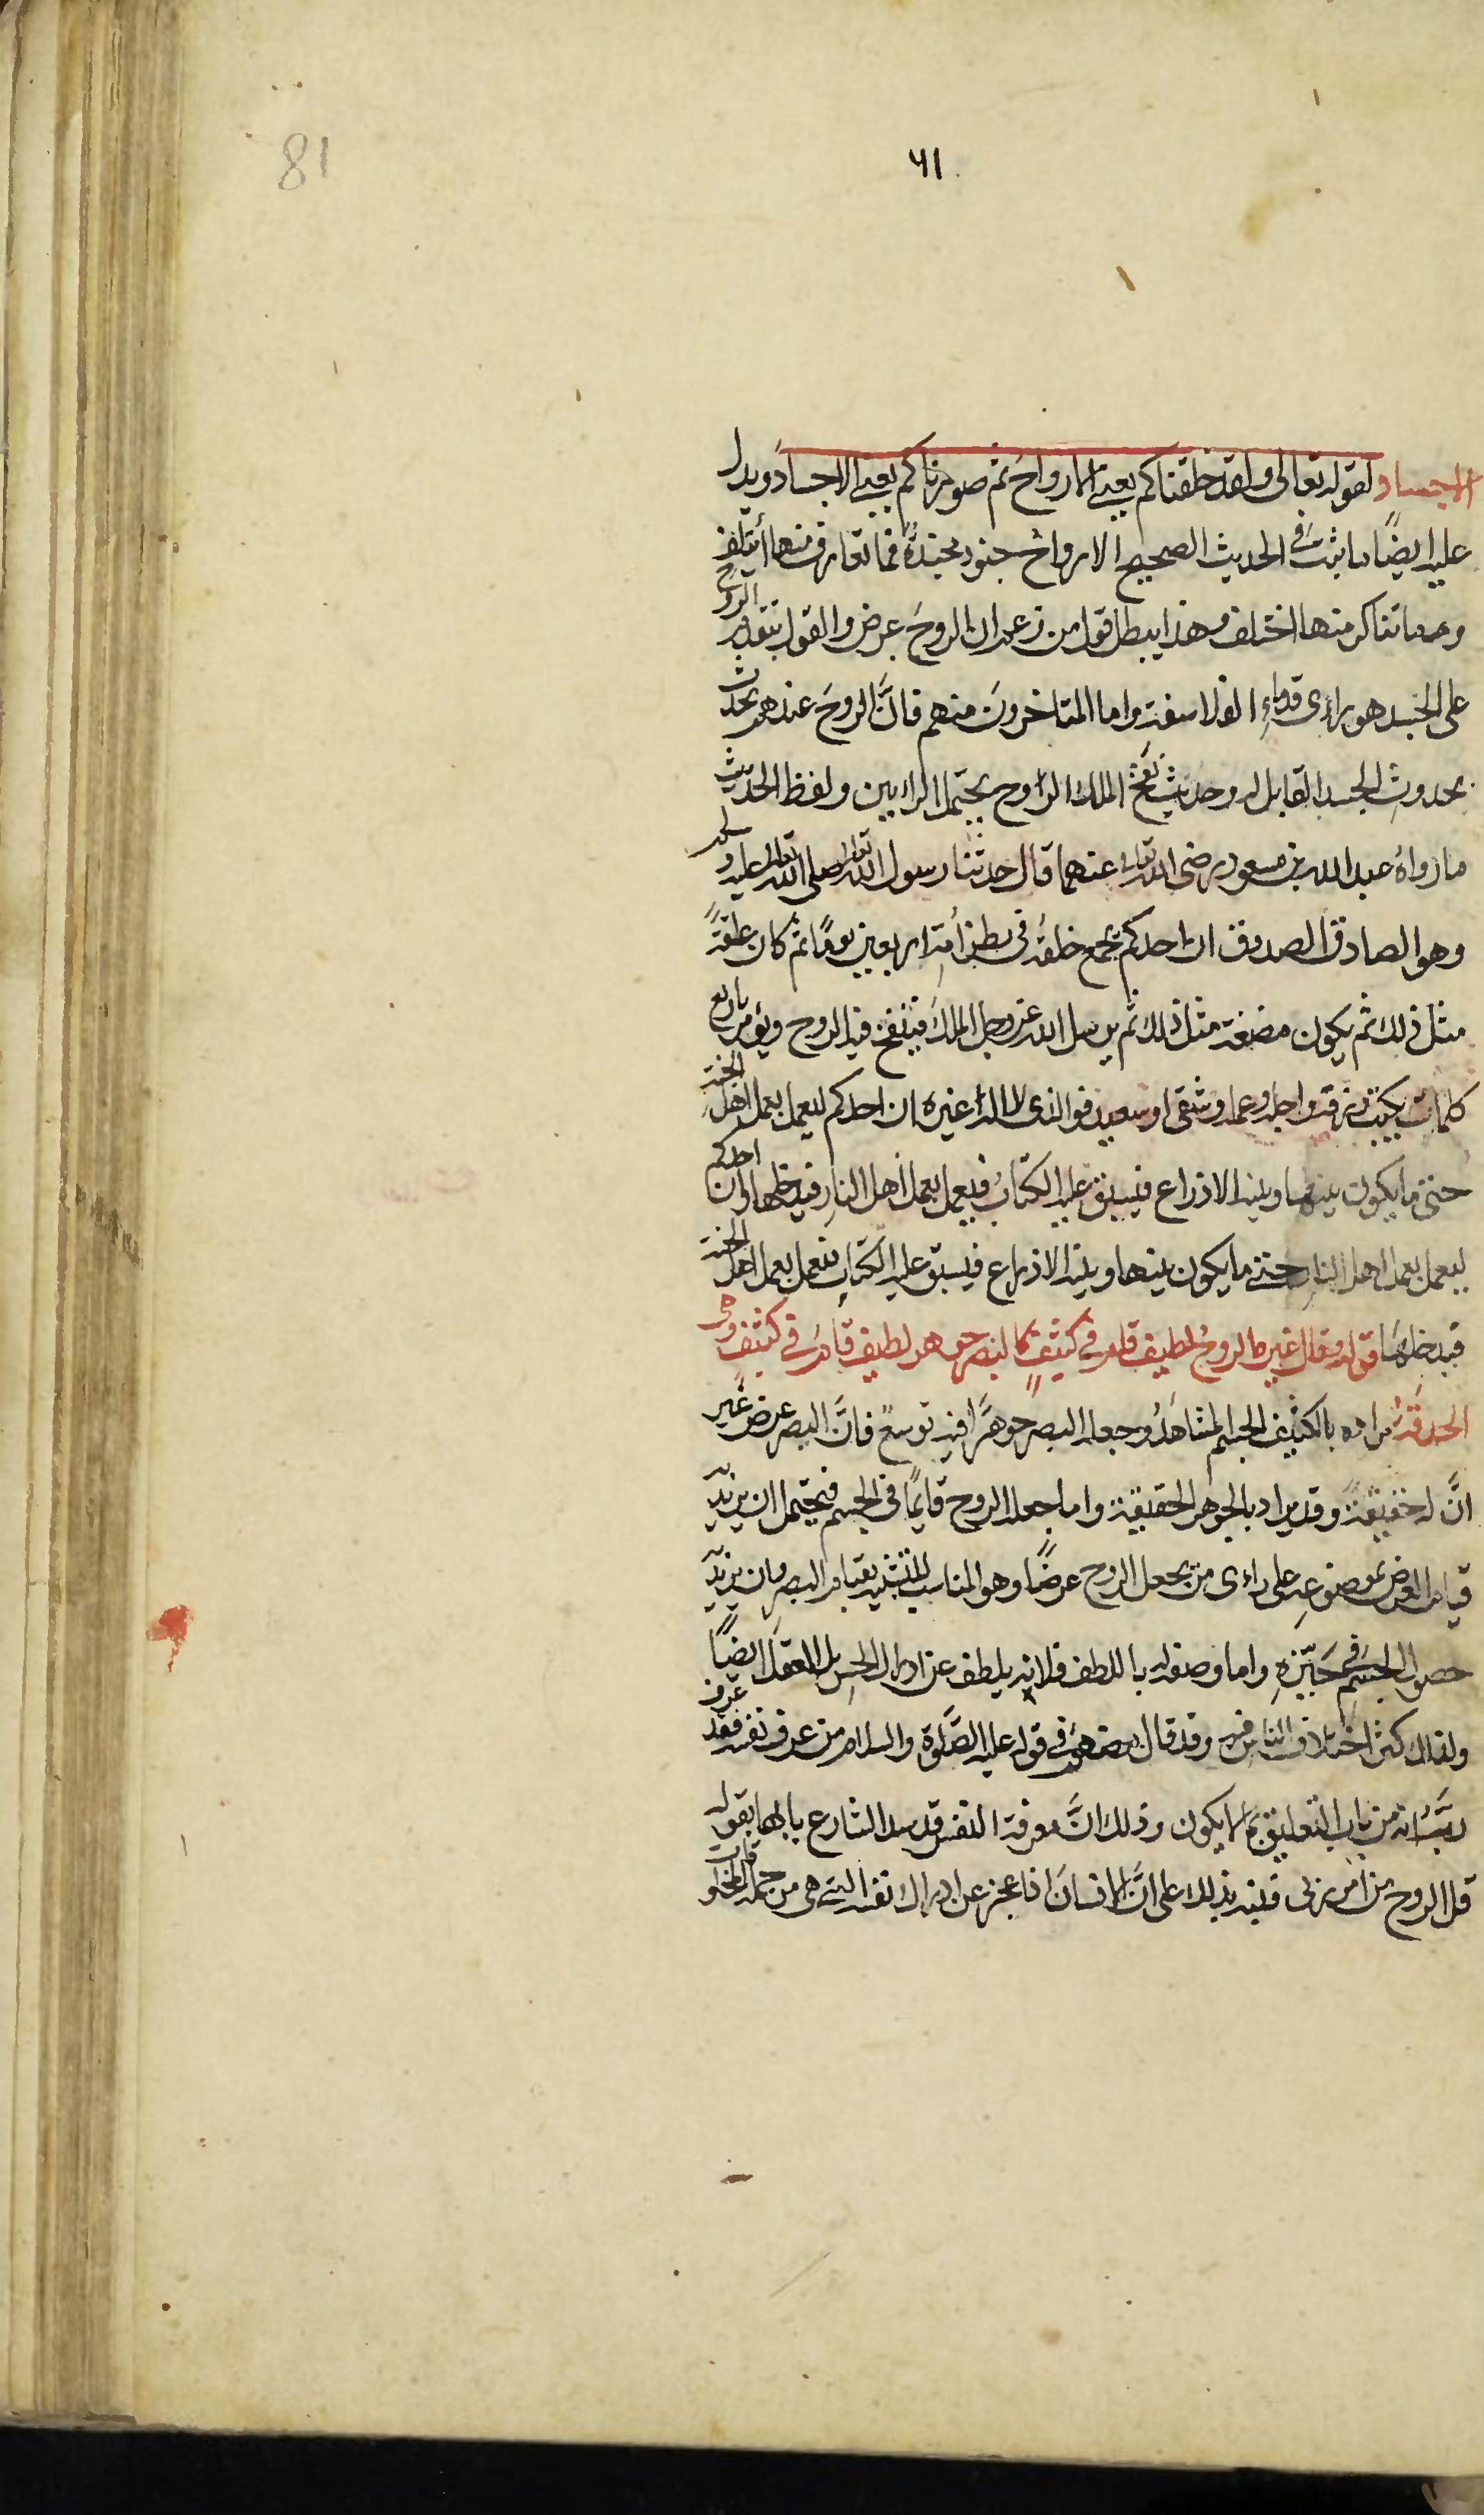 ٦١
81
الاجساد لقوله تعالى ولقد خلقناكم يعني الارواح ثم صورناكم يعني الاجساد ويدل
عليه ايضًا ما ثبت في الحديث الصحيح الارواح جنود مجندة فما تعارف منها أيتلف
وما تناكر منها اختلف وهذا يبطل قول من زعم ان الروحَ عرض والقول بتقدم الروح
على الجسد هو راى قدماءِ الفلاسفة واما المتاخرونَ منهم فانَّ الروحَ عندهم يحدث
بحدوثِ الجسد القابل له وحديث نفخ الملك الروح يحتمل الرايين ولفظ الحديث
ما رواهُ عبد الله بن مسعود رضى الله تعالى عنهما قال حدثنا رسول الله تعالى صلى الله تعالى عليه وسلم
وهو الصادق الصدوق ان احدكم يجمع خلقه في بطن أمّه اربعين يومًا ثم كان علقةً
مثل ذلك ثم يكون مضغة مثل ذلك ثم يرسل الله عز وجل الملكَ فينفخ فيه الروح ويؤمر باربع
كلمات بكتب رزقه واجله وعمله وشقى او سعيد فوالذى لا اله غيره ان احدكم ليعمل بعمل اهل الجنة
حتى ما يكون بينها وبينه الا ذراع فيسبق عليه الكتابُ فيعمل بعمل أهل النار فيدخلها وان احدكم
ليعمل بعمل اهل النار حتى ما يكون بينها وبينه الا ذراع فيسبق عليه الكتاب فيعمل بعمل اهل الجنة
فيدخلها قوله وقال غيره الروحُ لطيف قام في كثيفٍ كالبصر جوهر لطيف قام في كثيف وهى
الحدقةُ مراده بالكثيف الجسم المشاهَدُ وجعله البصر جوهرًا فيه توسعٌ فانَّ البصر عرض غير
انَّ له حقيقةً وقد يراد بالجوهر الحقيقة واما جعله الروح قايمًا في الجسم فيحتمل ان يريد
قيام العرض بموضوعه على راءى من يجعل الروح عرضًا وهو المناسب للتشبيه بقيام البصر وان يريد
حصول الجسم في حَيّزهِ واما وصفه له باللطف فلانه يلطف عن ادراك الحس بل العقل ايضًا
ولذلك كثر اختلاف الناس فيه وقد قال بعضهم في قوله عليه الصَّلوة والسلام من عرف نفسه فقد عرف
ربَّهُ انه من باب التعليق بما لا يكون وذلك انَّ معرفة النفس قد سد الشارع بابها بقوله
قل الروح من امر ربى فنبه بذلك على انَّ الانسانَ اذا عجز عن ادراك نفسه التي هى من جملة المخلوقات